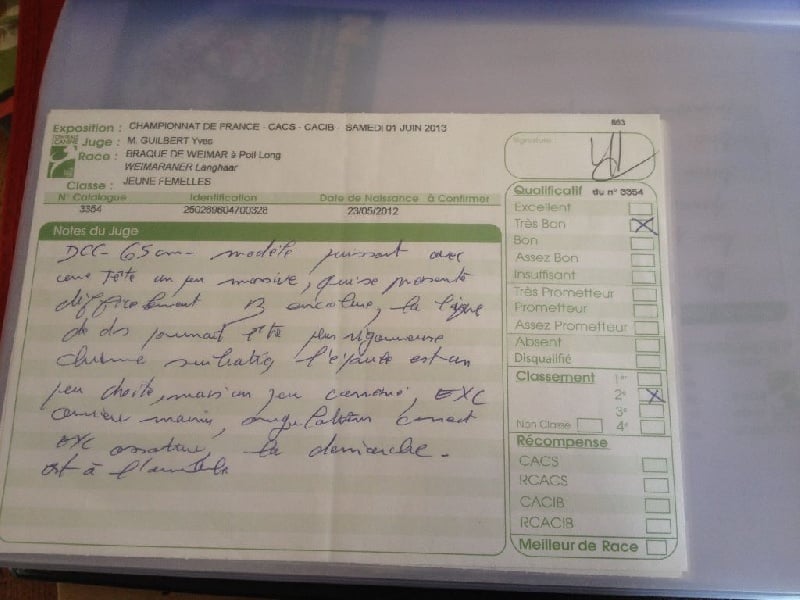 663
Exposition : CHAMPIONNAT DE FRANCE - CACS - CACIB - SAMEDI 01 JUIN 2013
Juge : M. GUILBERT Yves
Race : BRAQUE DE WEIMAR à Poil Long
WEIMARANER Langhaar
Classe : JEUNE FEMELLES
N° Catalogue Identification Date de Naissance à Confirmer
3354 250269604700328 23/05/2012
Signature :
Notes du Juge
DCC - 65 cm - modèle puissant avec
une tête un peu massive, qui se présente
difficilement B encolure, la ligne
de dos pourrait être plus rigoureuse
l'épaule est un
peu droite, mais un peu EXC
angulation correct
EXC ossature, la démarche -
est à l'amble
Qualificatif du n° 3354
Excellent
Très Bon
Bon
Assez Bon
Insuffisant
Très Prometteur
Prometteur
Assez Prometteur
Absent
Disqualifié
Classement 1er
2e
3e
Non Classé 4e
Récompense
CACS
RCACS
CACIB
RCACIB
Meilleur de Race